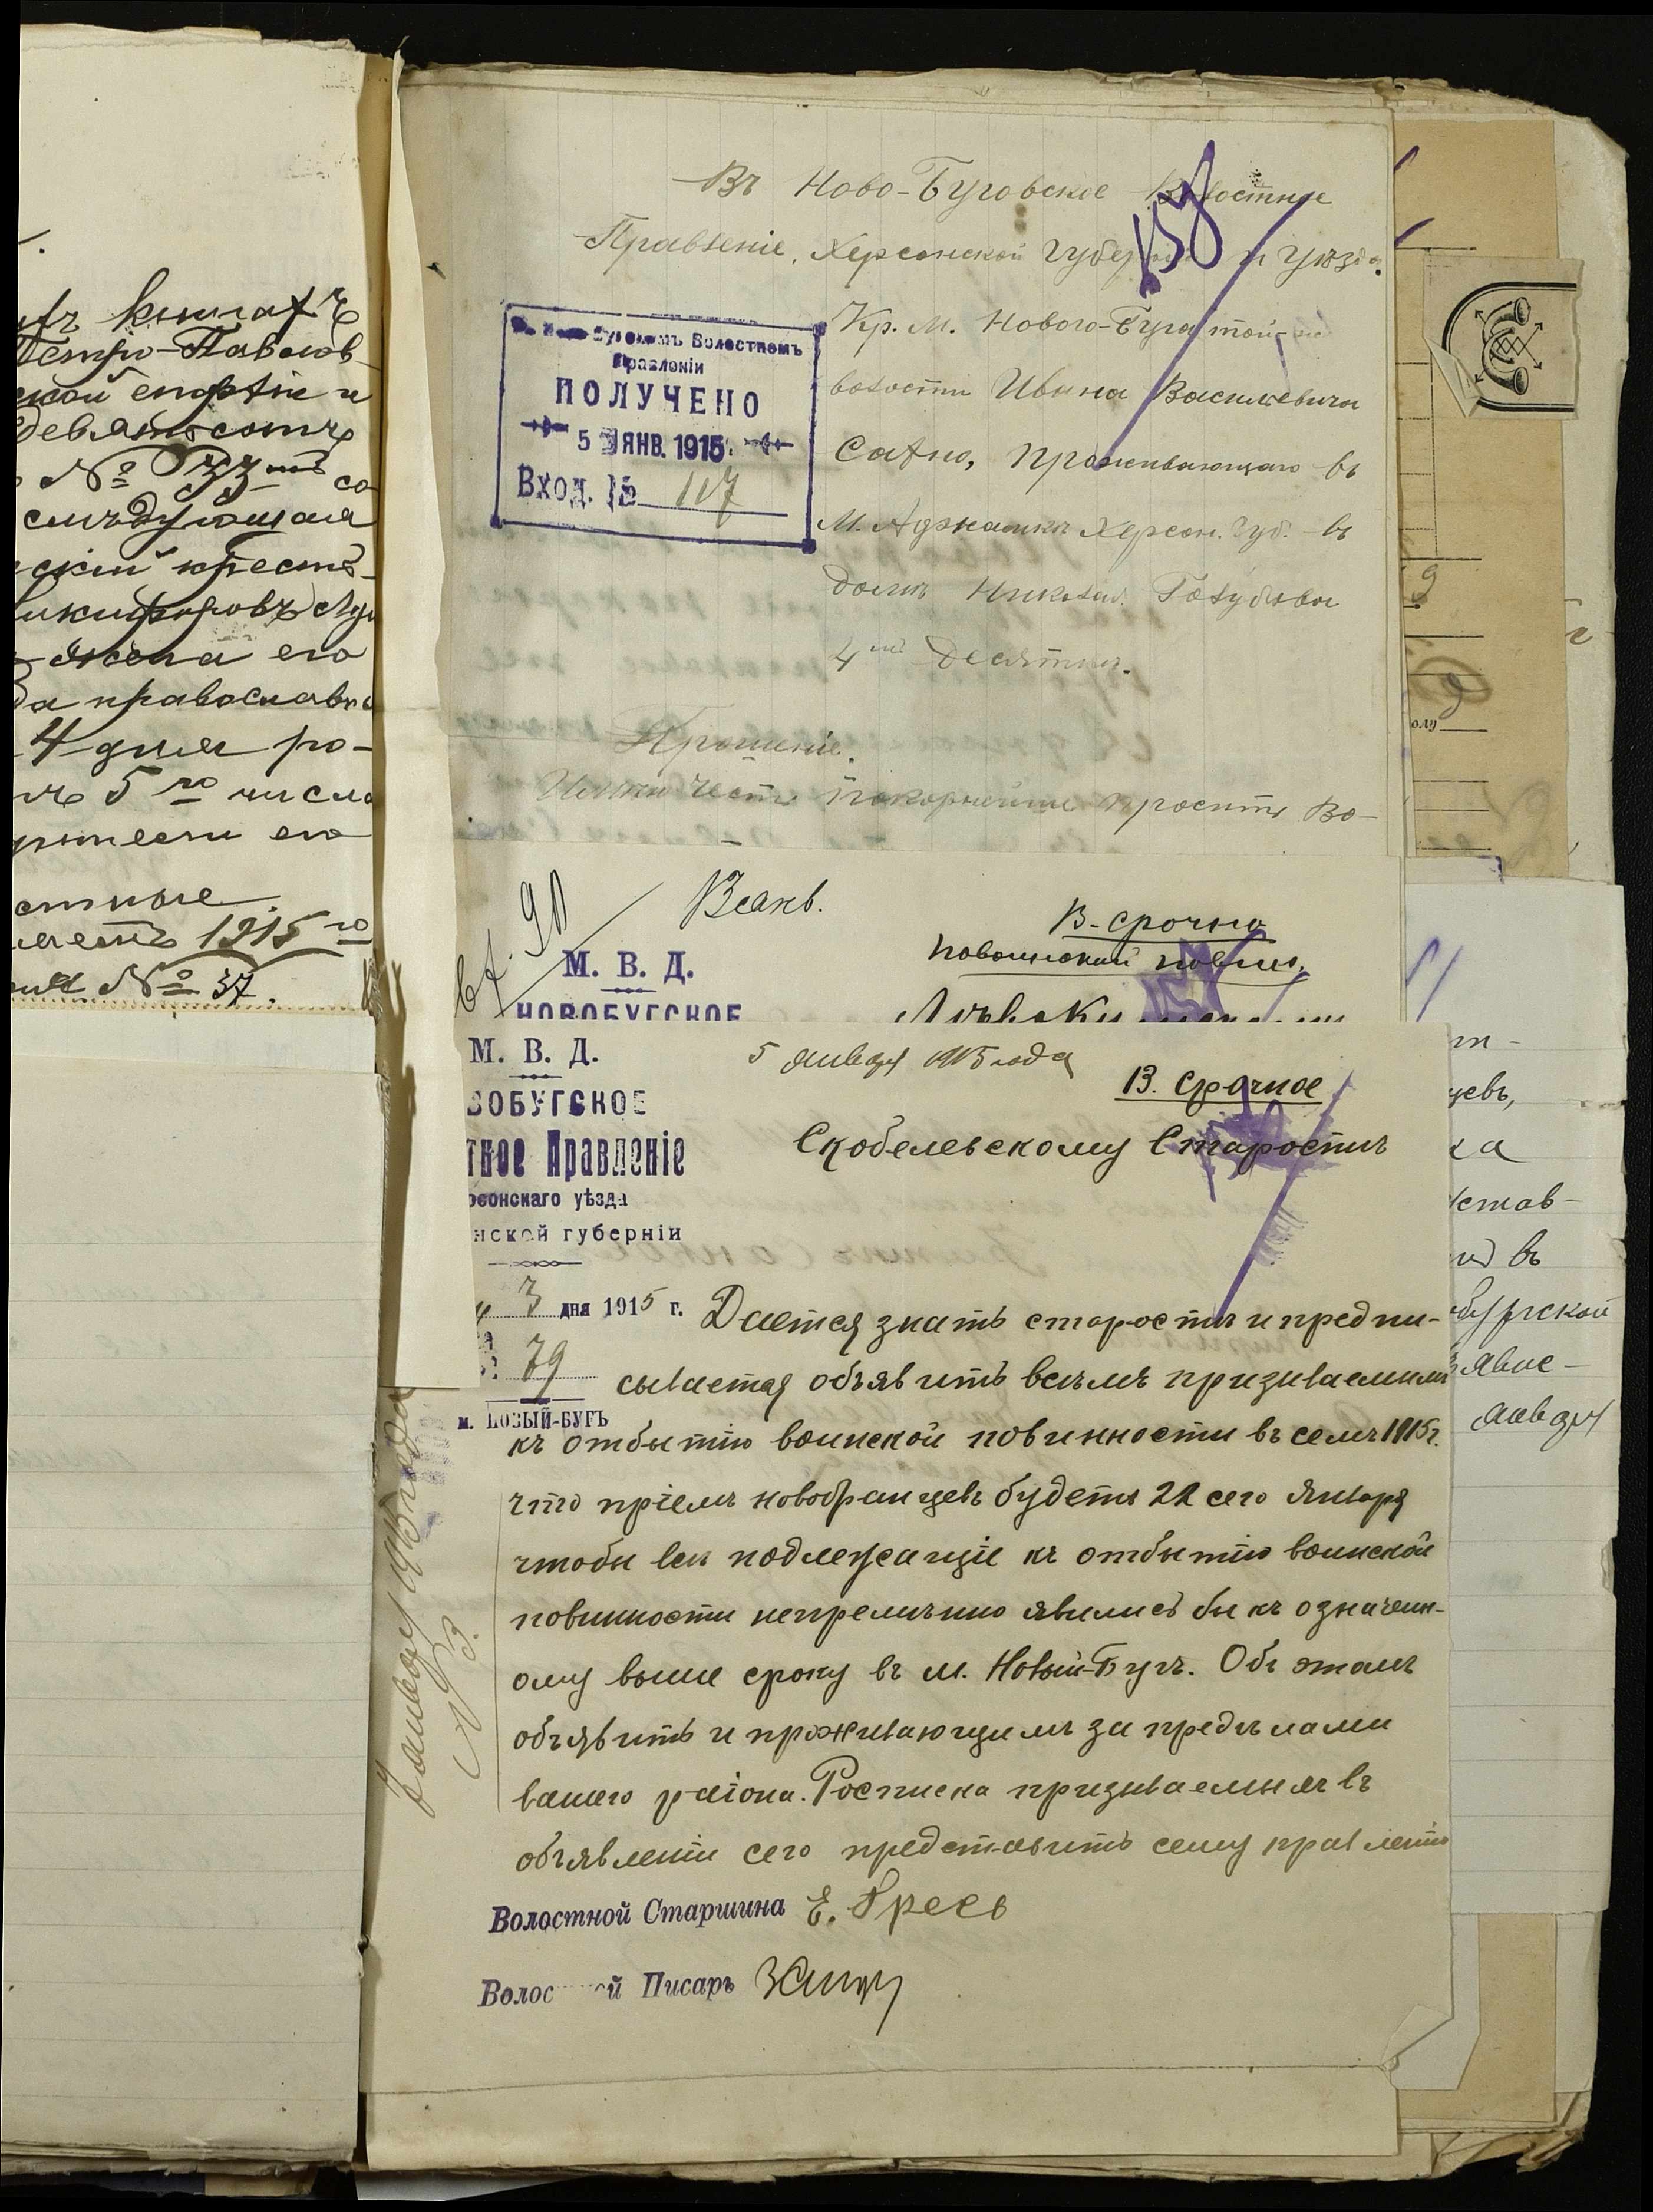 ѣхъ книгахъ
Петро-Павлов-
ской епархіи и
девятьсотъ
№
слѣдующая
скій кресть-
икифоровъ
жена его
православн
4 дня ро-
5 го числа
принесли его
стные
1915 го
№ 37.
Въ Ново-Буговское Волостное
Правленіе, Херсонской Губерніи и Уѣзда.
Кр. М. Нового-Буга той-же
волости Ивана Васильевича
Сахно, Проживающаго въ
М. Аджамкѣ Херсон. Губ. въ
домѣ Николая Голубова
4 десятин.
157
Бугскомъ Волостномъ
Правленіи
ПОЛУЧЕНО
5 ЯНВ. 1915.
Вход. № 107
Прошеніе.
Имѣю честь покорнѣйше просить Во-
вх. 90
В. срочно
По воинской повин.
М. В. Д.
НОВОБУГСКОЕ
М. В. Д.
ВОБУГСКОЕ
тное Правленіе
рсонскаго уѣзда
нской губерніи
3 дня 1915 г.
79
м. НОВЫЙ-БУГЪ
5 января 1915 года
В. Срочное
Скобелевскому Старостѣ
Дается знать старостѣ и предпи-
сывается объявить всѣмъ призываемымъ
къ отбытію воинской повинности въ семъ 1915 г.
что пріемъ новобранцевъ будетъ 22 сего Января
чтобы всѣ подлежащіе къ отбытію воинской
повинности непремѣнно явились бы къ означенн-
ому выше сроку въ м. Новый-Бугъ. Объ этомъ
объявить и проживающимъ за предѣлами
вашего раіона. Росписка призываемыхъ въ
объявленіи сего представить сему правленію
Волостной Старшина Е. Гресь
Волостной Писарь
января 1915 года
№ 3.
цевъ,
ка
став-
въ
явле-
января